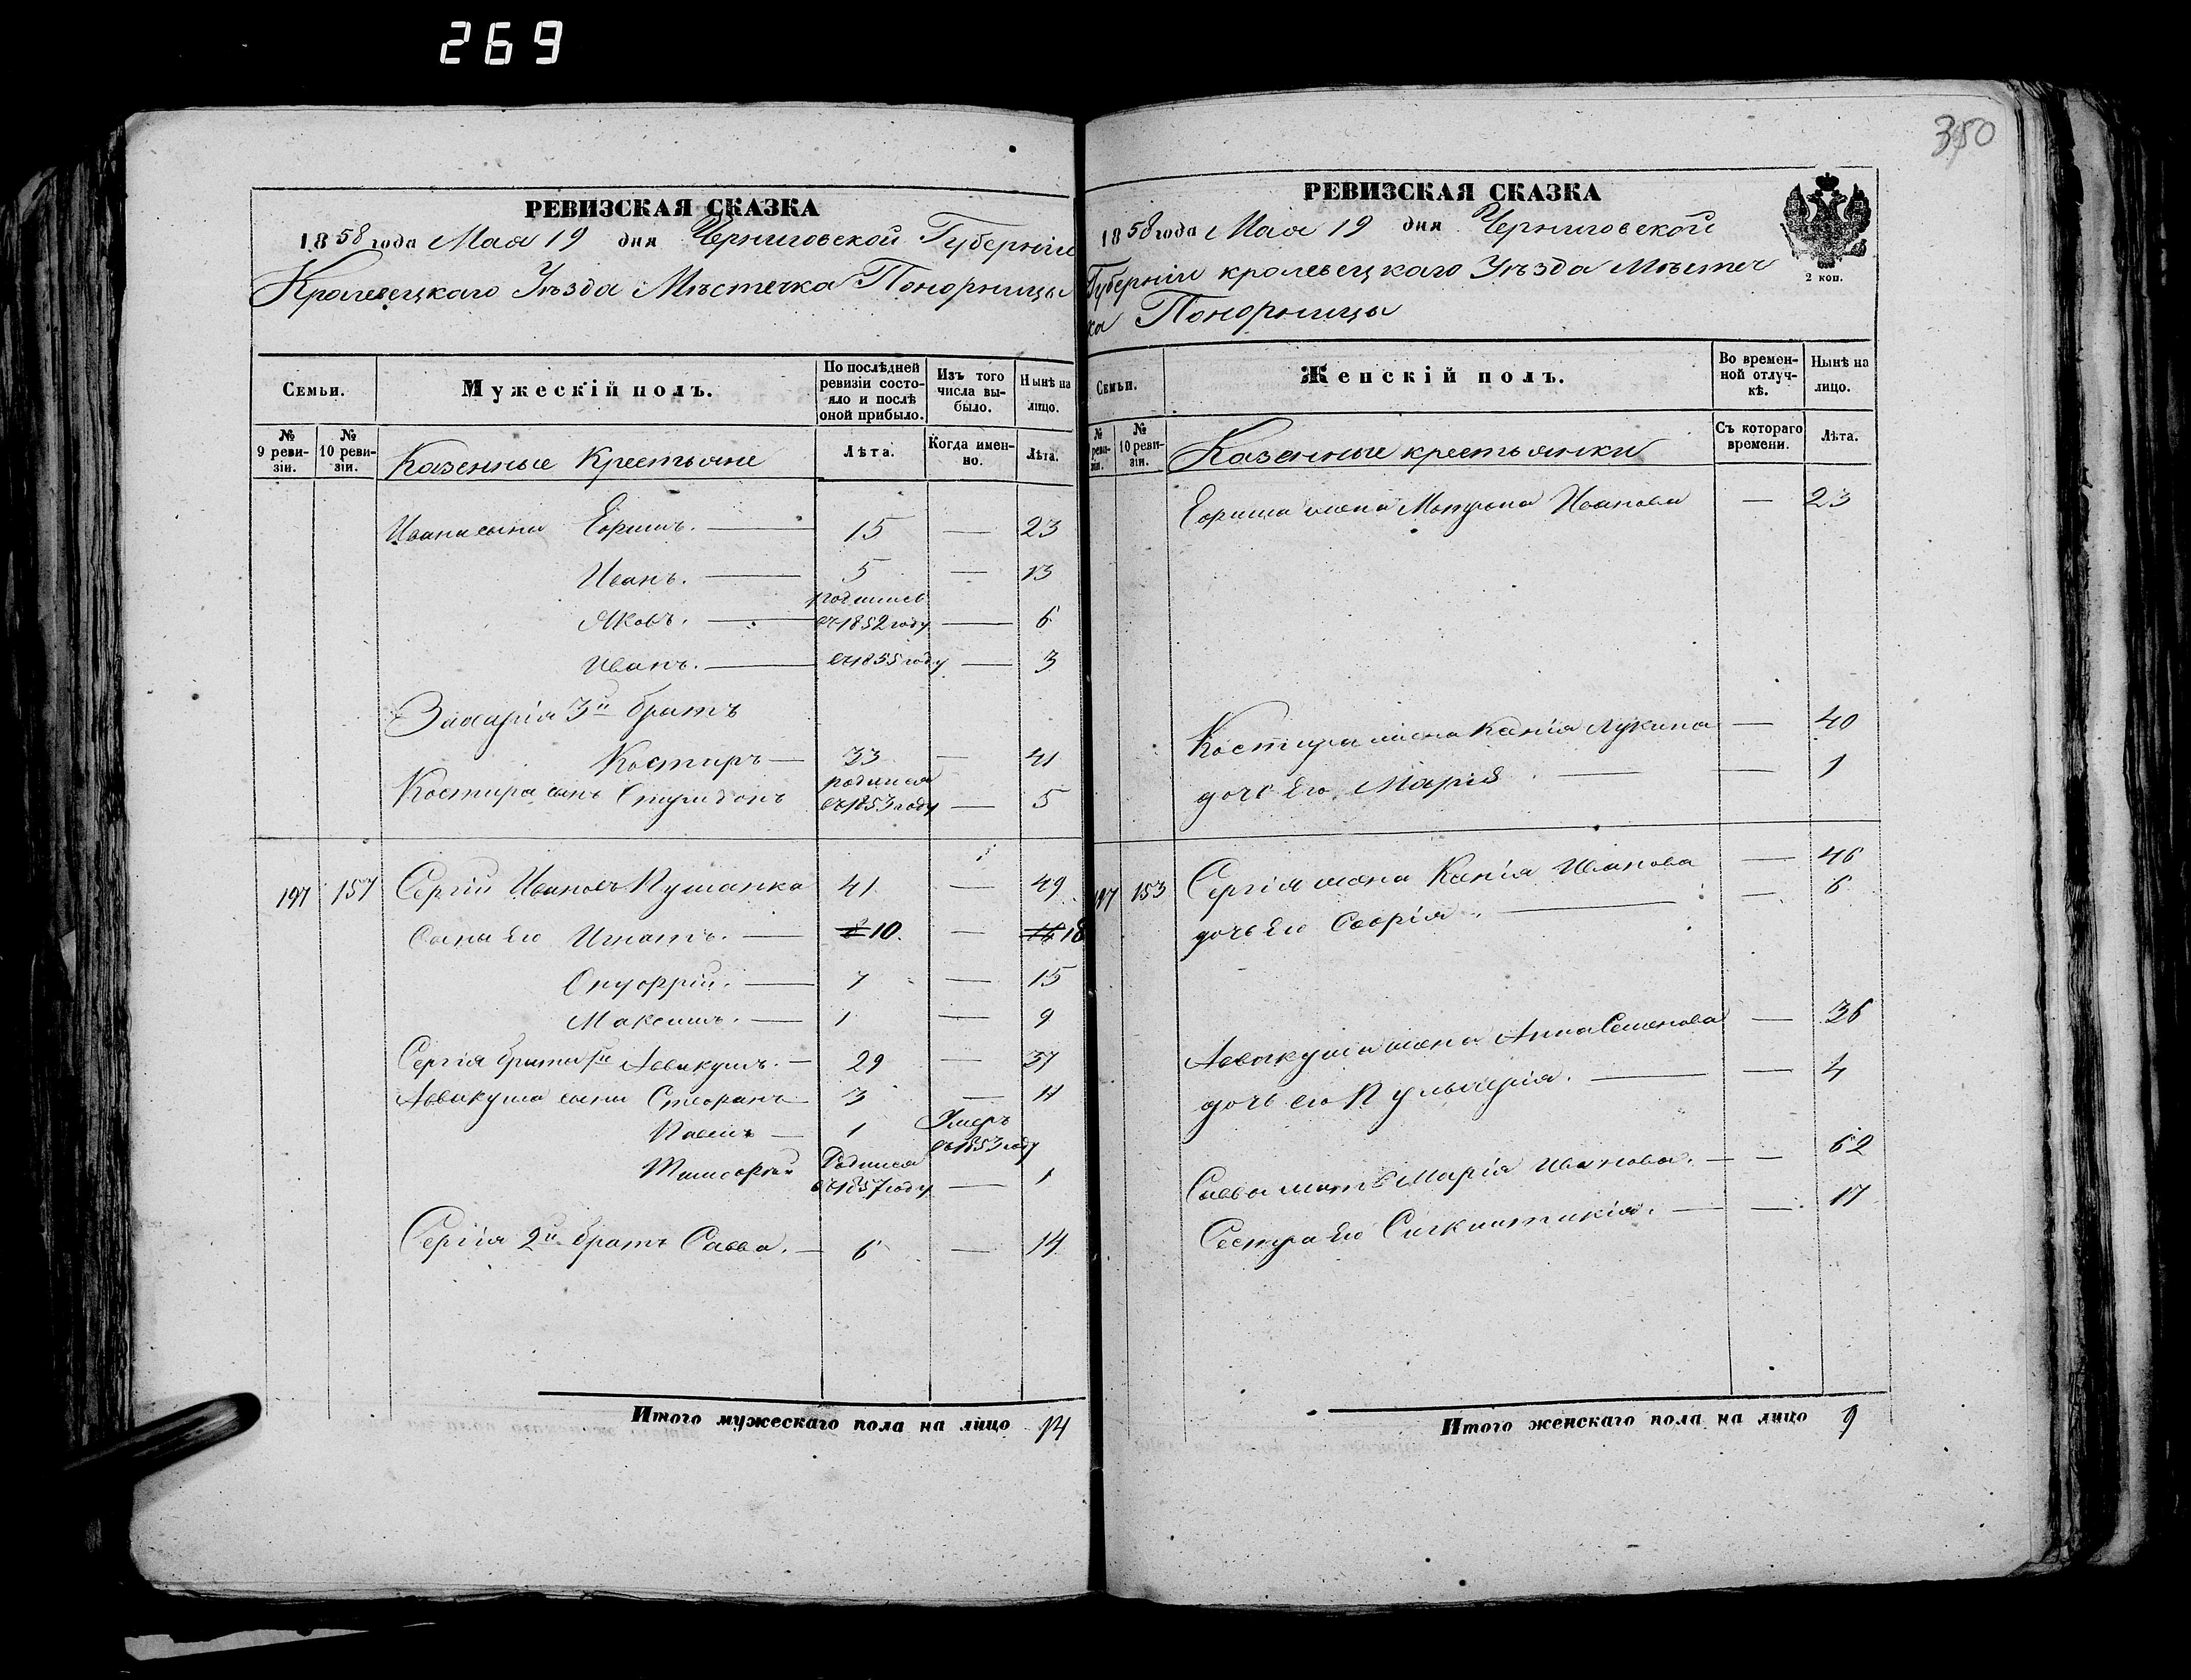 269
350
РЕВИЗСКАЯ СКАЗКА
1858 года Мая 19 дня Черниговской Губерніи
Кролевецкаго Уѣзда Мѣстечка Понорницы
Семьи.
Мужескій полъ.
По послѣдней ревизіи состояло и послѣ оной прибыло.
Изъ того числа выбыло.
Нынѣ на лицо.
№ 9 ревизіи.
№ 10 ревизіи.
Казенные Крестьяне
Лѣта.
Когда именно.
Лѣта.
Ивана сыны Ефимъ. — 15 — 23
Иванъ. — 5 — 13
родился
Яковъ. — въ 1852 году — 6
Иванъ. — въ 1855 году — 3
Захарія 3й братъ
— 33 — 41
родился
сынъ Спиридонъ въ 1853 году — 5
197 157 Сергій Ивановъ 41 — 49
Сыны его Игнатъ. — 10. — 18
Онуфрій. — 7 — 15
Максимъ. — 1 — 9
Сергія братъ Аввакумъ. — 29 — 37
Аввакума сыны Стефанъ — 3 — 11
— 1 Умеръ въ 1853 году
Тимофей Родился въ 1857 году — 1
Сергія 2й братъ Савва. — 6 — 14
Итого мужескаго пола на лицо 14
РЕВИЗСКАЯ СКАЗКА
1858 года Мая 19 дня Черниговской
Губерніи кролевецкаго Уѣзда Мѣстеч
ка Понорницы
2 коп.
Семьи.
Женскій полъ.
Во временной отлучкѣ.
Нынѣ на лицо.
№ 9 ревизіи.
№ 10 ревизіи.
Казенные крестьянки
Съ котораго времени.
Лѣта.
Ефима жена Иванова — 23
жена Ксенія Лукина — 40
дочь его Марія — — 1
197 153 Сергія жена Ксенія Иванова — 46
дочь его Софія. — — 6
Аввакума жена Анна Семенова — 36
дочь его Пульхерія. — — 4
Савва мать Марія Иванова. — — 62
Сестра его — — 17
Итого женскаго пола на лицо 9